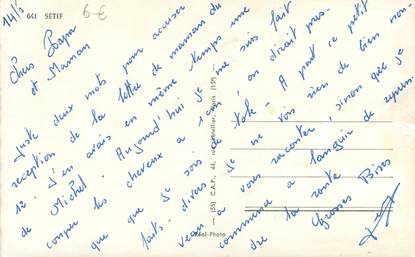 14/3
641 SÉTIF
6 €
Chers Papa
et Maman
Juste deux mots pour accuser
reception de la lettre de maman du
12. J'en avais en même temps une
de Michel. Aujourd'hui je me suis fait
couper les cheveux a 1 cm, on dirait pres-
que que je sois toké! A part ce petit
faits-divers je ne vois rien de bien nou-
veau a vous raconter, sinon que je
commence a languir de repren-
dre la route
Grosses Bises
(55) C.A.P., 44, Paris (15e)
Réal-Photo